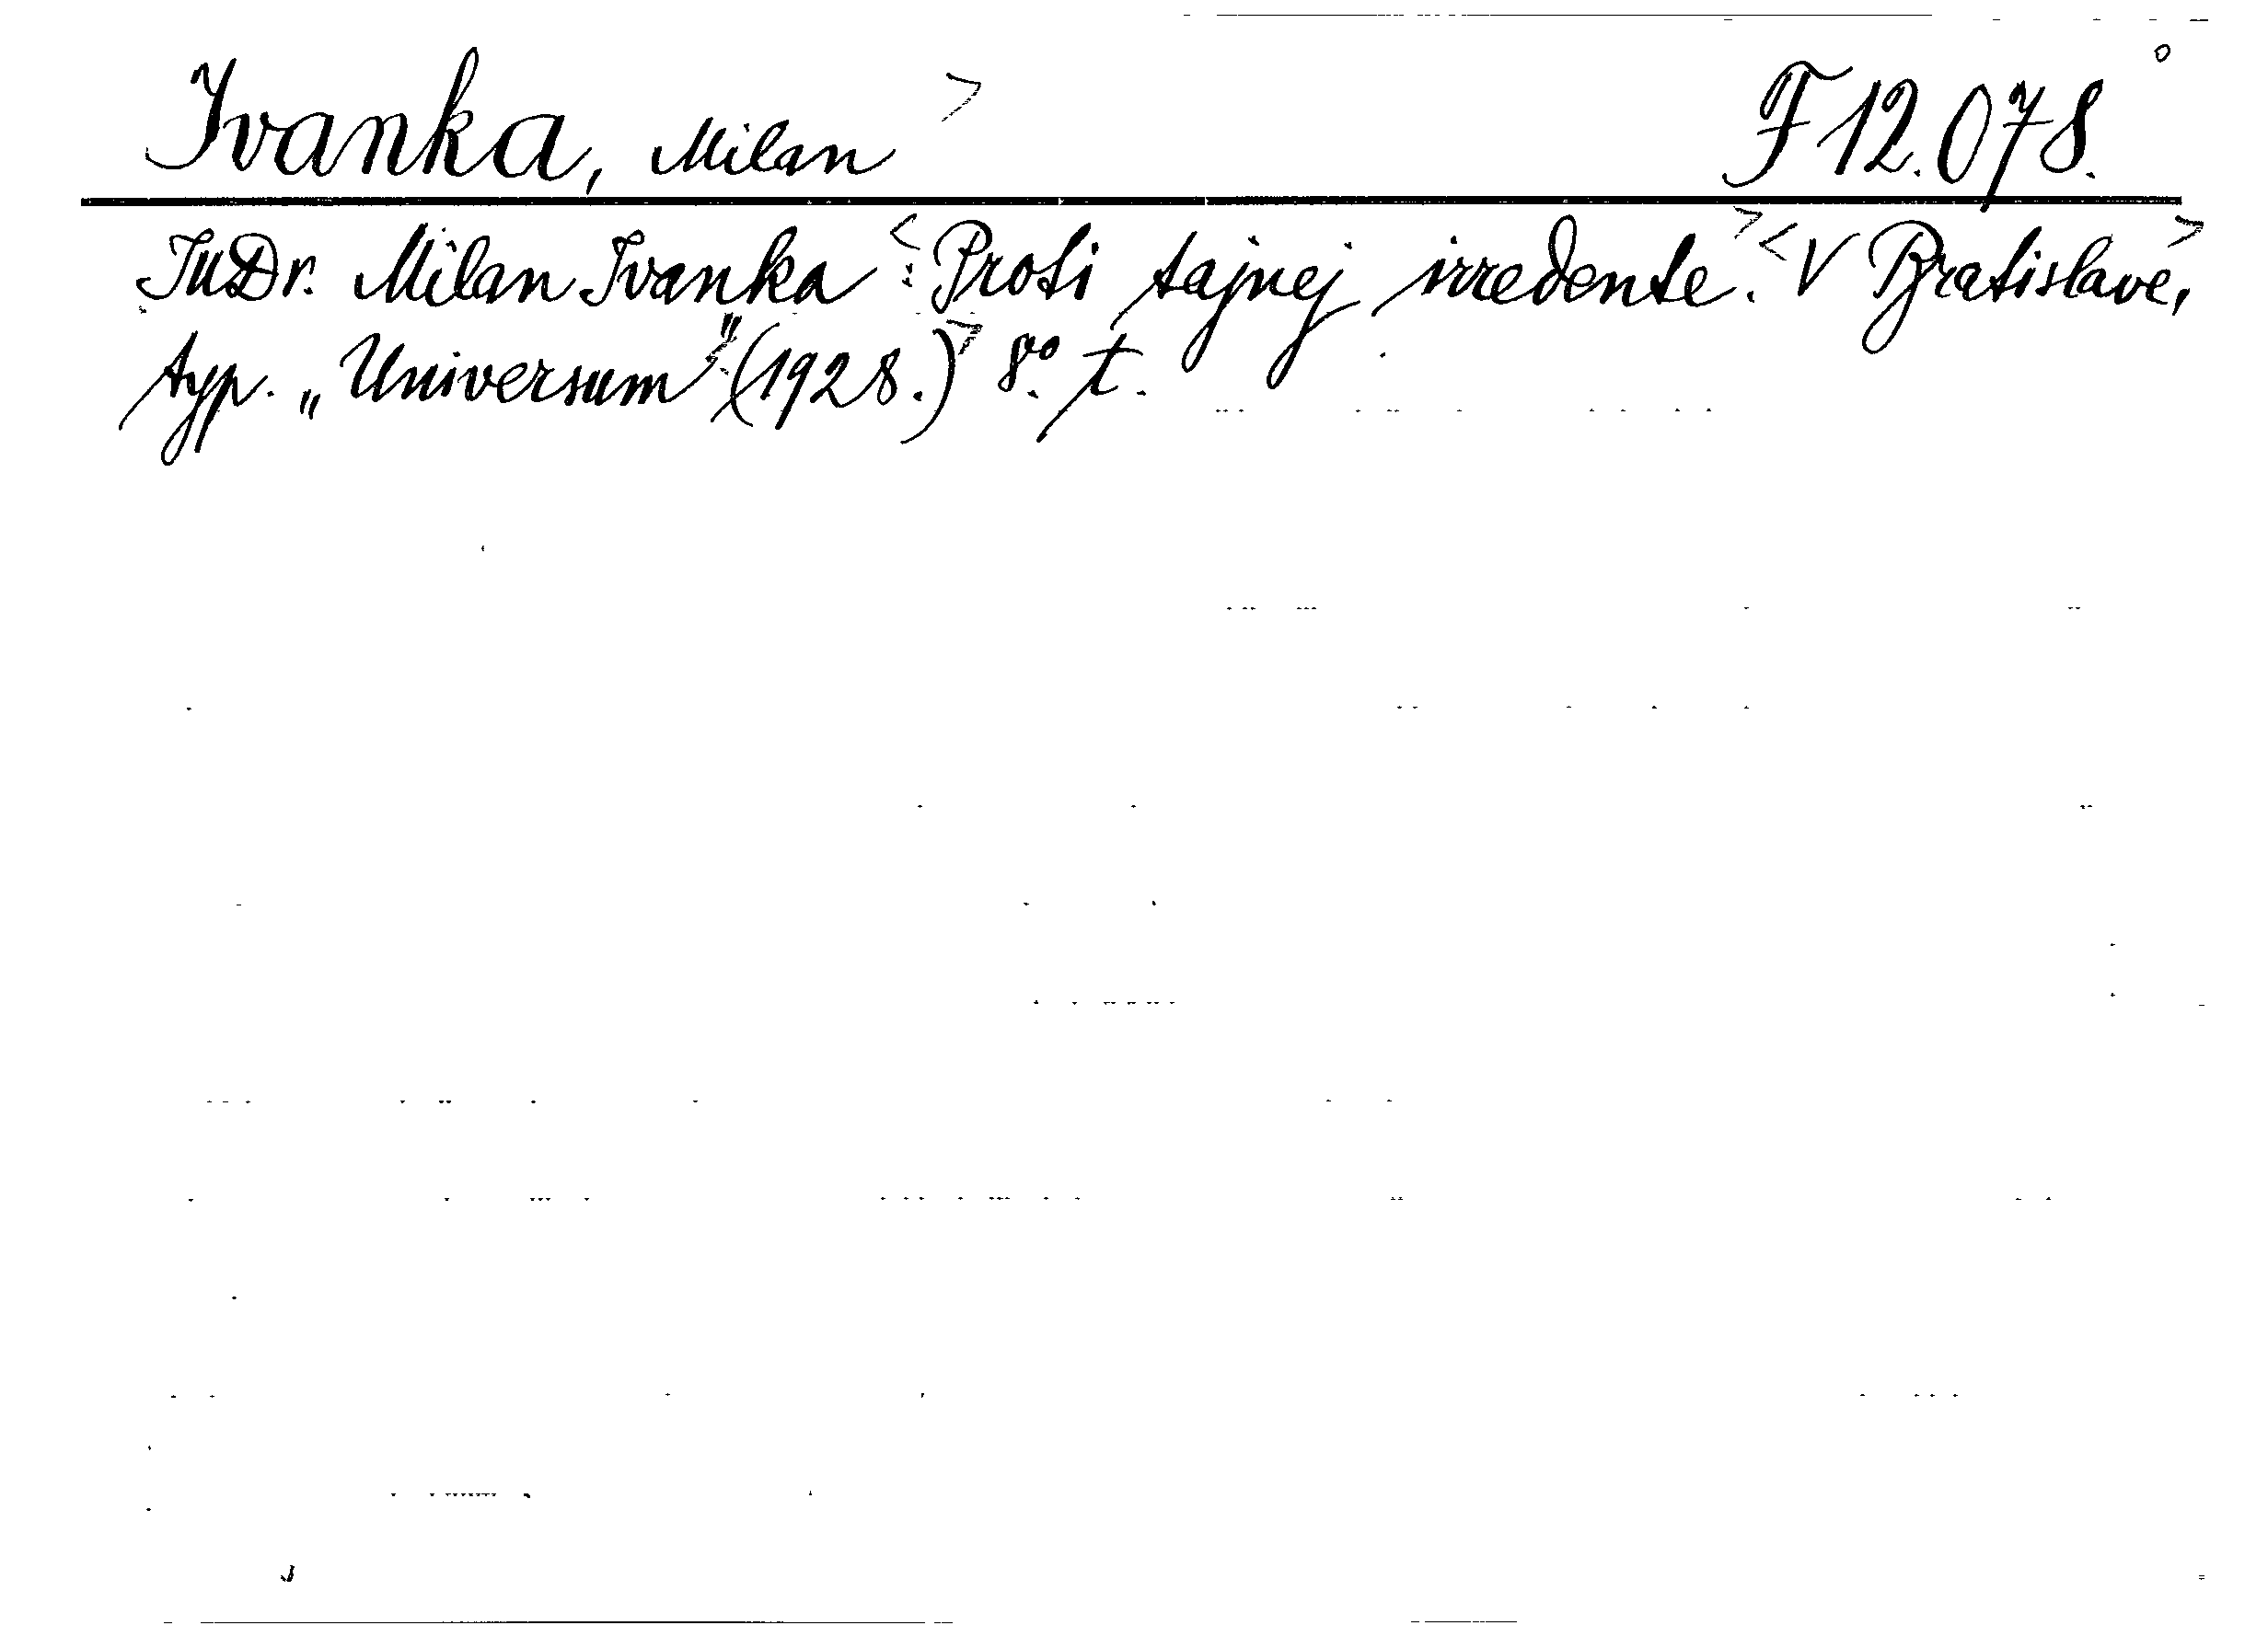 Ivanka, Milan > F 12.078.
JuDr. Milan Ivanka <: Proti tajnej irredente. > < V Bratislave, >
typ. „Universum" < (1928.) > 8.° t.